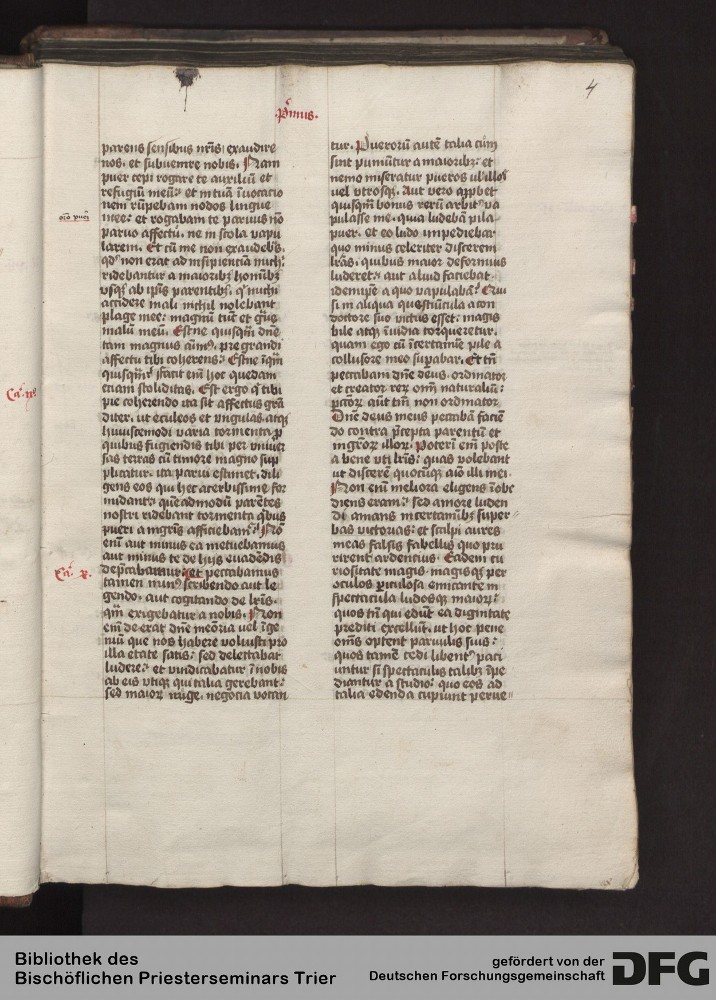 4
Pͥmus.
parens sensibus nr̄is exaudire
nos. et subuenire nobis. Nam
puer cepi rogare te auxiliū et
refugiū meū: et in tuā īuocatio
nem rūpebam nodos lingue
mee: et rogabam te paruus nō
paruo affectu. ne in scola vapu
larem. Et cū me non exaudebꝭ.
qd̓ non erat ad insipienciā michi
ridebantur a maioribꝫ hominibꝫ
vsqꝫ ab ip̄is parentibꝫ. qͥ michi
accidere mali nichil nolebant
plage mee: magnū tūc et gͣue
malū meū. Estne quisqm̄ dn̄e
tam magnus aīmꝰ. pregrandi
affectu tibi coherens: Estne īqͣm
quisqm̄: facit em̄ hoc quedam
etiam stoliditas. Est ergo qͥ tibi
pie coherendo ita sit affectus grā
diter. ut eculeos et vngulas. atqꝫ
huiuscemodi varia tormenta ꝓ
quibus fugiendis tibi per vniuer
sas terras cū timore magno sup
plicatur. ita parui estimet. dili
gens eos qui hec acerbissime for
midant: quēadmodū parētes
nostri ridebant tormenta qͥbus
pueri a mgr̄is afficiebam̄. Nō
em̄ aut minus ea metuebamus
aut minus te de hijs euadēdis
dep̄cabamur: et peccabamus
tamen minꝰ scribendo aut le
gendo. aut cogitando de lr̄is.
qm̄ exigebatur a nobis. Non
em̄ deerat dn̄e meōria vel īge
niū que nos habere voluisti pro
illa etate satis: sed delectabat
ludere: et vindicabatur ī nobis
ab eis vtiqꝫ qui talia gerebant:
sed maiorꝝ nuge. negocia vocan
oro̅ pueri
Ca. ix
Ca. x.
tur. Puerorū autē talia cum
sint puniūtur a maioribꝫ: et
nemo miseratur pueros ul̓ illos
vel vtrosqꝫ. Aut vero app̄bet
quisqm̄ bonus rerū arbiter va
pulasse me. quia ludebā pila
puer. et eo ludo impediebar
quo minus celeriter discerem
lr̄as. quibus maior deformius
luderet: aut aliud faciebat
idem ipse a quo vapulabā: Qui
si in aliqua questiūcula a con
doctore suo victus esset: magis
bile atqꝫ īuidia torqueretur.
quam ego cū ī certamīe pile a
collusore meo suꝑabar. Et tn̄
peccabam dn̄e deus. ordinator
et creator rerꝝ om̄ naturaliū:
pctorꝝ aūt tm̄ non ordinator
Dn̄e deus meus peccabā faciē
do contra p̄cepta parentū et
mgr̄orꝝ illorꝝ. Poterā em̄ poste
a bene vti lr̄is: quas volebant
ut discerē quocūqꝫ aīo illi mei.
Non enī meliora eligens īobe
diens eram: sed amore luden
di. amans in certamibꝫ super
bas victorias: et scalpi aures
meas falsis fabellis quo pru
rirent ardentius. Eadem cu
riositate magis magisqꝫ per
oculos ꝑiculosa emicante in
spectacula ludosqꝫ maiorꝝ:
quos tn̄ qui edūt ea dignitate
prediti excellūt. ut hoc pene
om̄s optent paruulis suis:
quos tamē cedi libent̓ paci
untur si spectaculis talibꝫ īpe
diantur a studio: quo eos ad
talia edenda cupiunt perue
Bibliothek des
Bischöflichen Priesterseminars Trier
gefördert von der
Deutschen Forschungsgemeinschaft
DFG